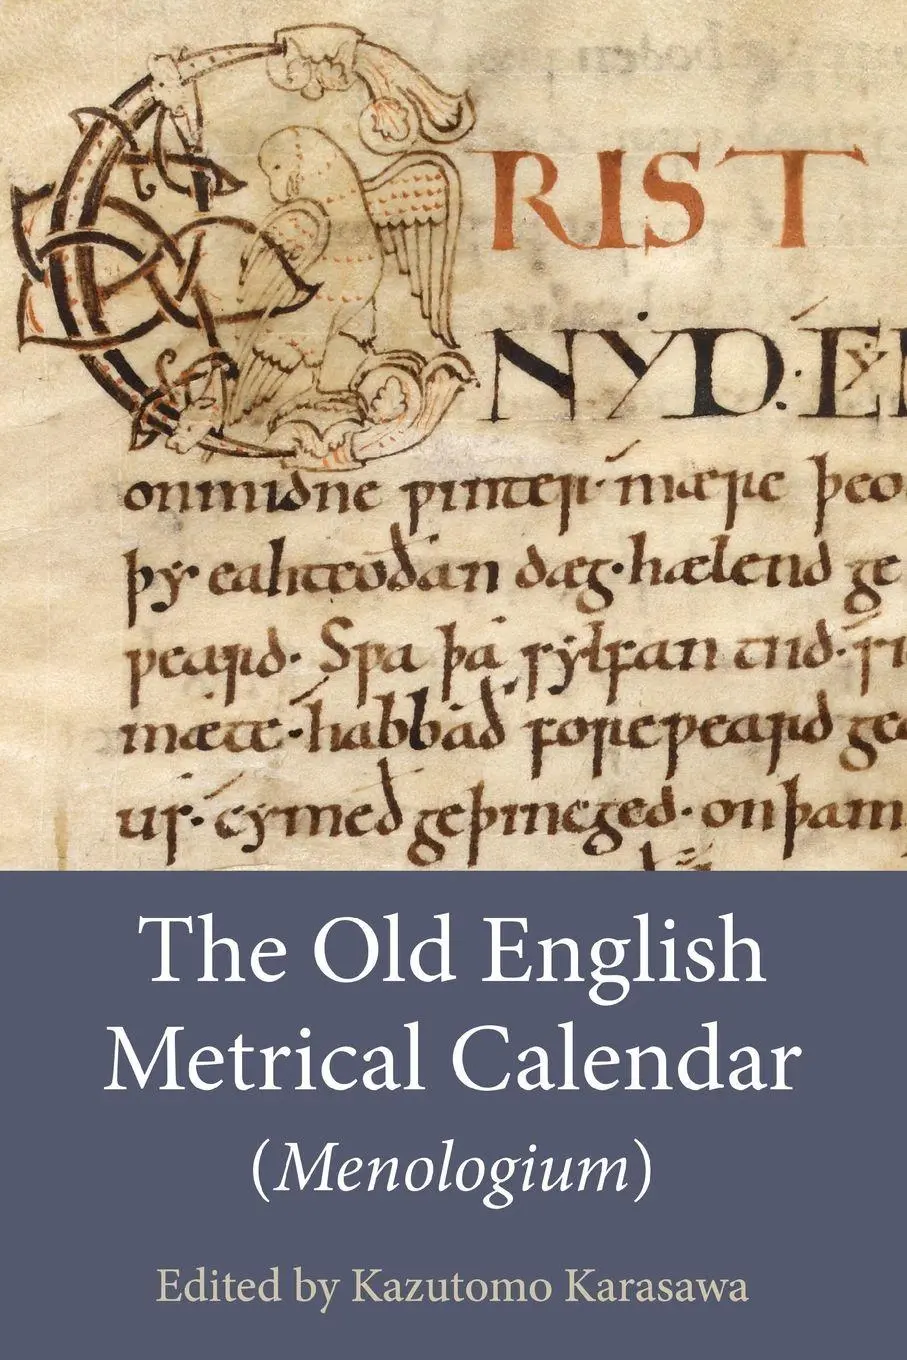 CRIST
NẎD·CẎN
onmidne ƿinter· mære þeo
þẏ eahteoðan dæg·hælend ge
ƿeard· Sƿa þá sẏlfan tiid·si
mæte·habbað foreƿeard gea
us·cẏmeð geþincged·onþam
The Old English
Metrical Calendar
(Menologium)
Edited by Kazutomo Karasawa